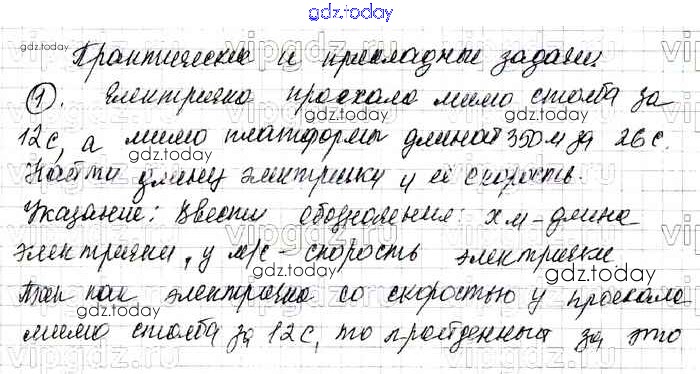 gdz.today
Практические и прикладные задачи.
①. Електричка проехала мимо столба за
12с, а мимо платформы длиной 350 м за 26 с.
Найти длину электрички и её скорость.
Указание: Ввести обозначения: х м – длина
электрички, у м/с – скорость электрички
Так как электричка со скоростью у проехала
мимо столба за 12с, то пройденный за это